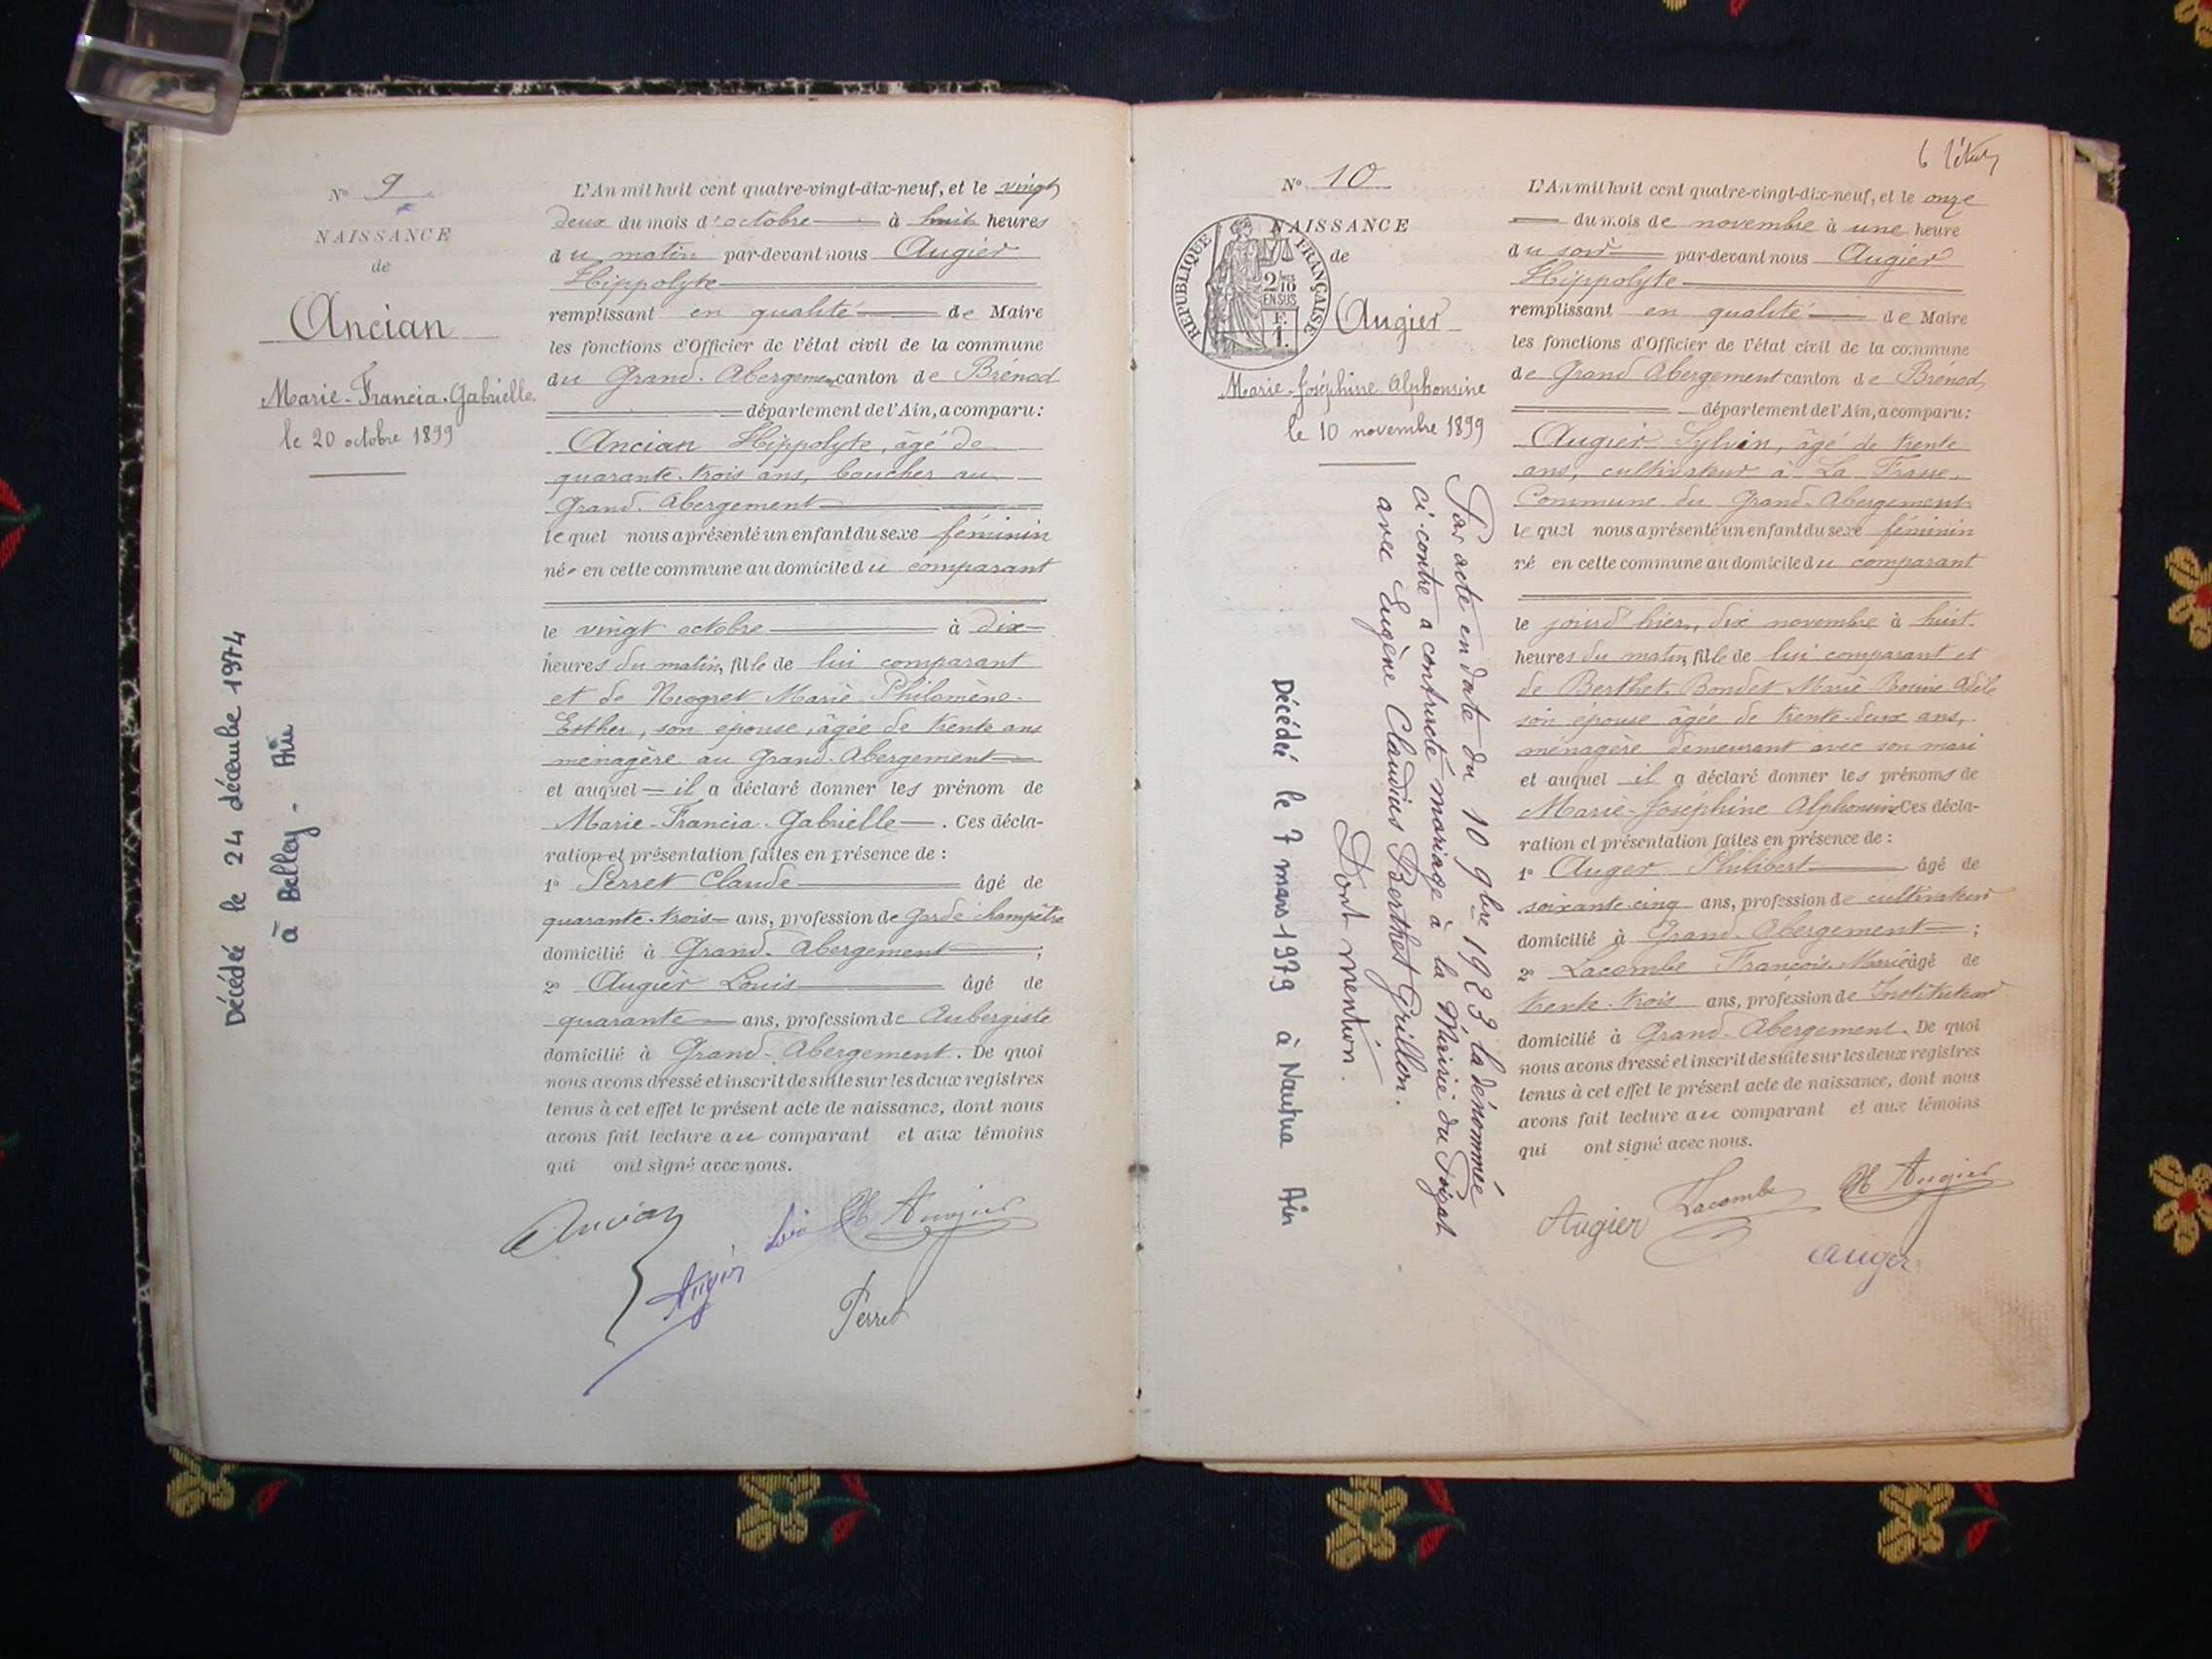 N° 9
NAISSANCE
de
Ancian
Marie-Francia-Gabrielle
le 20 octobre 1899
Décédée le 24 décembre 1974
à Belley - Ain
L'An mil huit cent quatre-vingt-dix-neuf, et le vingt
deux du mois d'octobre à huit heures
du matin par-devant nous Augier
Hippolyte
remplissant en qualité de Maire
les fonctions d'Officier de l'état civil de la commune
du Grand-Abergement canton de Brénod
département de l'Ain, a comparu:
Ancian Hippolyte, âgé de
quarante-trois ans, boucher au
Grand-Abergement
lequel nous a présenté un enfant du sexe féminin
née en cette commune au domicile du comparant
le vingt octobre à dix
heures du matin, fille de lui comparant
et de Marie Philomène-
Esther, son épouse, âgée de trente ans
ménagère au Grand-Abergement
et auquel il a déclaré donner les prénom de
Marie-Francia-Gabrielle. Ces décla-
ration et présentation faites en présence de :
1° Perret Claude âgé de
quarante-trois ans, profession de Garde champêtre
domicilié à Grand-Abergement ;
2° Augier Louis âgé de
quarante ans, profession de Aubergiste
domicilié à Grand-Abergement. De quoi
nous avons dressé et inscrit de suite sur les deux registres
tenus à cet effet le présent acte de naissance, dont nous
avons fait lecture au comparant et aux témoins
qui ont signé avec nous.
Ancian
H Augier
Augier
Perret
6
N° 10
NAISSANCE
de
REPUBLIQUE FRANÇAISE
2/10
EN SUS
F.
1.
Augier
Marie-Joséphine Alphonsine
le 10 novembre 1899
Par acte en date du 10 9bre 1923 la dénommée
ci-contre a contracté mariage à la Mairie du Poizat
avec Eugène Claudius Berthet Grillon.
Dont mention.
Décédée le 7 mars 1979 à Nantua Ain
L'An mil huit cent quatre-vingt-dix-neuf, et le onze
du mois de novembre à une heure
du soir par-devant nous Augier
Hippolyte
remplissant en qualité de Maire
les fonctions d'Officier de l'état civil de la commune
de Grand Abergement canton de Brénod
département de l'Ain, a comparu:
Augier Sylvin, âgé de trente
ans, cultivateur à La
Commune du Grand-Abergement
lequel nous a présenté un enfant du sexe féminin
né en cette commune au domicile du comparant
le jourd'hier, dix novembre à huit
heures du matin, fille de lui comparant et
de Berthet-Bondet Marie Adèle
son épouse âgée de trente-deux ans,
ménagère demeurant avec son mari
et auquel il a déclaré donner les prénoms de
Marie-Joséphine Alphonsine Ces décla-
ration et présentation faites en présence de :
1° Auger Philibert âgé de
soixante-cinq ans, profession de cultivateur
domicilié à Grand-Abergement ;
2° Lacombe François Marie âgé de
trente-trois ans, profession de Instituteur
domicilié à Grand-Abergement. De quoi
nous avons dressé et inscrit de suite sur les deux registres
tenus à cet effet le présent acte de naissance, dont nous
avons fait lecture au comparant et aux témoins
qui ont signé avec nous.
Augier Lacombe H Augier
Auger